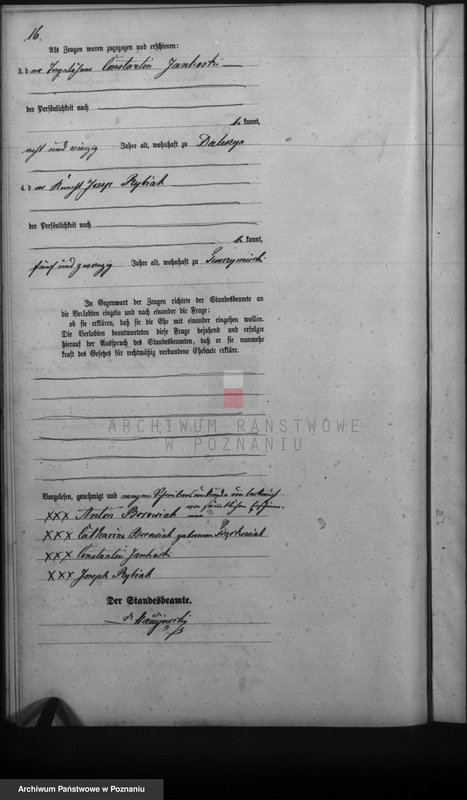 16.
Als Zeugen waren zugezogen und erschienen:
3. der Constantin Jankoski
der Persönlichkeit nach
be kannt,
acht und zwanzig Jahre alt, wohnhaft zu Daleszyn
4. der Knecht Josep Rybiak
der Persönlichkeit nach
be kannt,
fünf und zwanzig Jahre alt, wohnhaft zu
In Gegenwart der Zeugen richtete der Standesbeamte an
die Verlobten einzeln und nach einander die Frage:
ob sie erklären, daß sie die Ehe mit einander eingehen wollen.
Die Verlobten beantworteten diese Frage bejahend und erfolgte
hierauf der Ausspruch des Standesbeamten, daß er sie nunmehr
kraft des Gesetzes für rechtmäßig verbundene Eheleute erkläre.
ARCHIWUM PAŃSTWOWE
W POZNANIU
Vorgelesen, genehmigt und wegen
von sämmtlichen
XXX Anton Borowiak
XXX Catharina Borowiak geborenen
XXX Constantin Jankoski
XXX Joseph Rybiak
Der Standesbeamte.
Archiwum Państwowe w Poznaniu